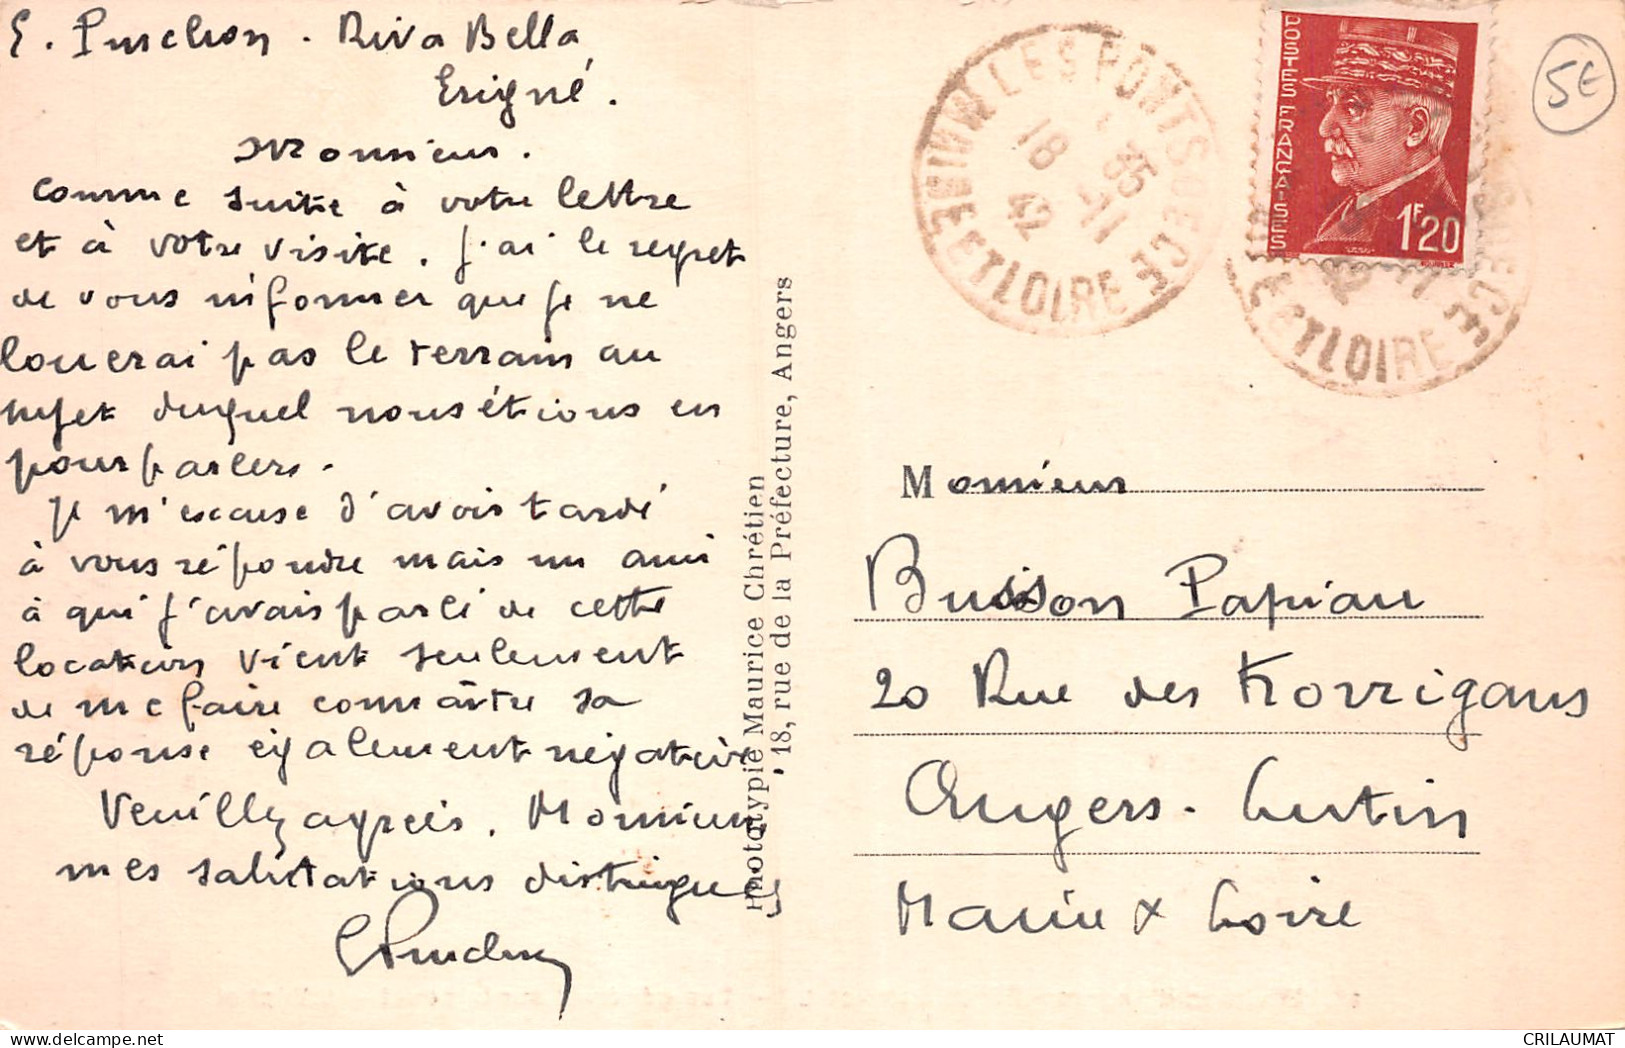 E. Pinchon. Riva Bella
Erigné.
Monsieur.
comme suite à votre lettre
et à votre visite. j'ai le regret
de vous informer que je ne
louerai pas le terrain au
sujet duquel nous étions en
pourparlers.
Je m'excuse d'avoir tardé
à vous répondre mais un ami
à qui j'avais parlé de cette
location vient seulement
de me faire connaître sa
réponse également négative
Veuillez agréer, Monsieur,
mes salutations distinguées
Phototypie Maurice Chrétien
18, rue de la Préfecture, Angers
LES PONTS DE CÉ
MAINE ET LOIRE
18 35
11
42
POSTES FRANÇAISES
1F20
ET LOIRE
5€
M Monsieur
Buisson Papiau
20 Rue des Korrigans
Angers-
Maine & Loire
CRILAUMAT